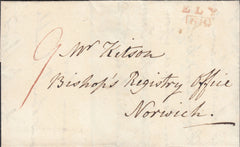 ELY
9 Mr Kitson
Bishop's Registry Office
Norwich.